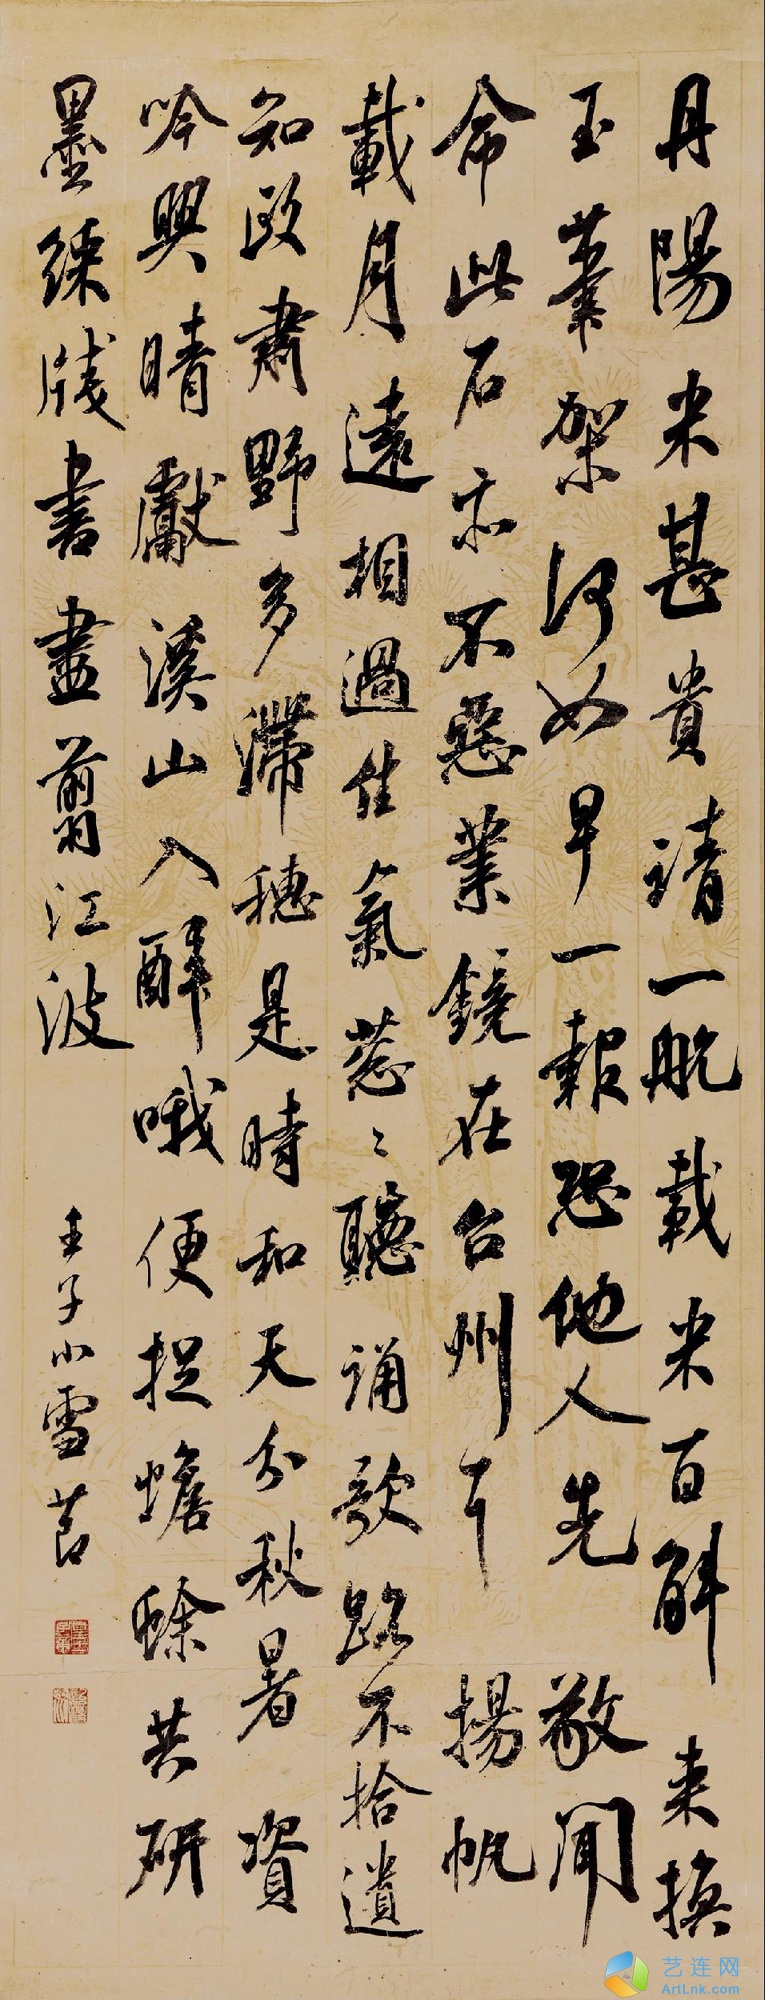 丹陽米甚貴請一航載米百斛来換
玉筆架何如早一報恐他人先 敬聞
命此石亦不惡業鏡在台州下 揚帆
載月遠相過佳氣葱々聽誦歌路不拾遺
知政肅野多滯穗是時和天分秋暑資
吟興晴獻溪山入醉哦便捉蟾蜍共研
墨綵牋書盡翦江波
壬子小雪芾
艺连网
ArtLnk.com